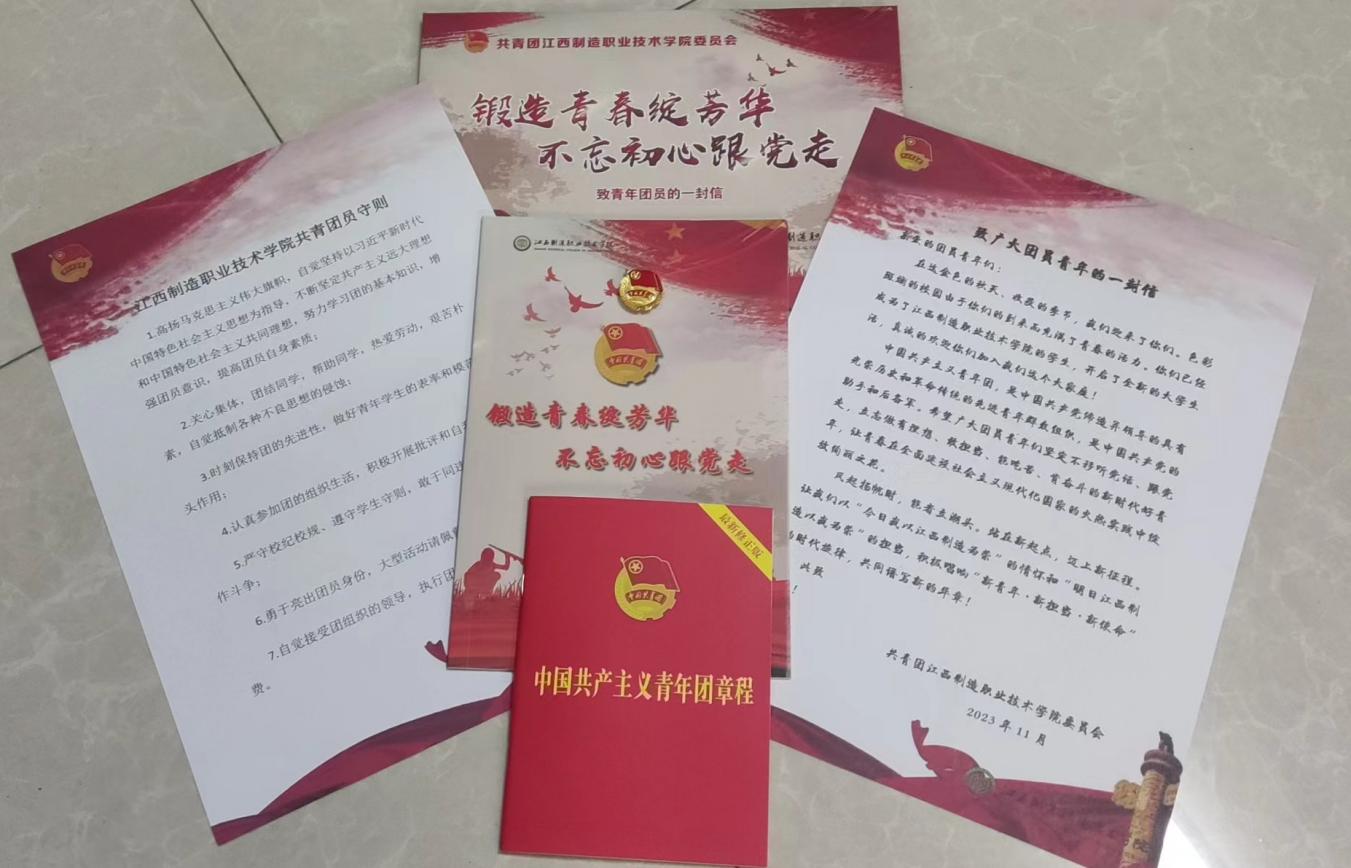 共青团江西制造职业技术学院委员会
锻造青春绽芳华
不忘初心跟党走
致青年团员的一封信
江西制造职业技术学院共青团员守则
1.高扬马克思主义伟大旗帜，自觉坚持以习近平新时代
中国特色社会主义思想为指导，不断坚定共产主义远大理想
和中国特色社会主义共同理想，努力学习团的基本知识，增
强团员意识，提高团员自身素质；
2.关心集体，团结同学，帮助同学，热爱劳动，艰苦朴
素，自觉抵制各种不良思想的侵蚀；
3.时刻保持团的先进性，做好青年学生的表率和模范
头作用；
4.认真参加团的组织生活，积极开展批评和自
5.严守校纪校规、遵守学生守则，敢于同违
作斗争；
6.勇于亮出团员身份，大型活动请佩
7.自觉接受团组织的领导，执行团
费。
江西制造职业技术学院
中国共青团
锻造青春绽芳华
不忘初心跟党走
最新修正版
中国共青团
中国共产主义青年团章程
致广大团员青年的一封信
亲爱的团员青年们：
在这金色的秋天、收获的季节，我们迎来了你们。色彩
斑斓的校园由于你们的到来而充满了青春的活力。你们已经
成为了江西制造职业技术学院的学生，开启了全新的大学生
活，真诚的欢迎你们加入我们这个大家庭！
中国共产主义青年团，是中国共产党缔造并领导的具有
光荣历史和革命传统的先进青年群众组织，是中国共产党的
助手和后备军。希望广大团员青年们坚定不移听党话、跟党
走，立志做有理想、敢担当、能吃苦、肯奋斗的新时代好青
年，让青春在全面建设社会主义现代化国家的火热实践中绽
放绚丽之花。
风起扬帆时，能者立潮头。站在新起点，迈上新征程。
让我们以“今日我以江西制造为荣”的情怀和“明日江西制
造以我为荣”的担当，积极唱响“新青年·新担当·新使命”
的时代旋律，共同谱写新的华章！
此致
！
共青团江西制造职业技术学院委员会
2023 年 11 月